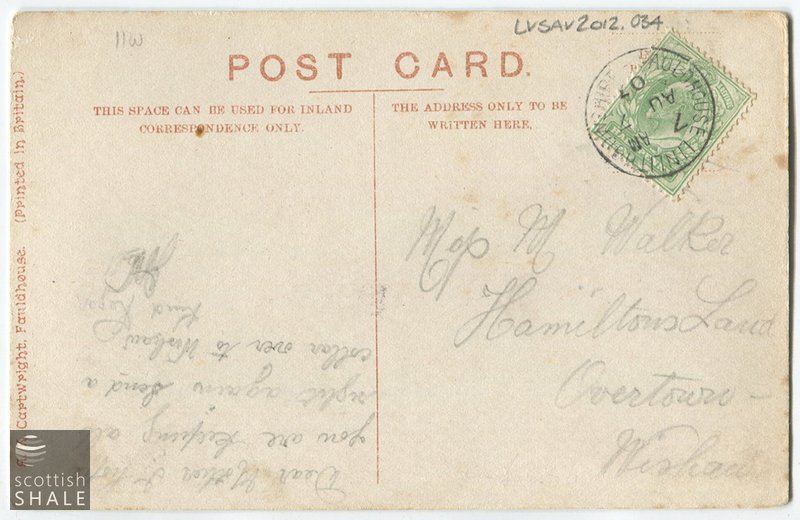 LVSAV2012.034
11W
POST CARD.
THIS SPACE CAN BE USED FOR INLAND
CORRESPONDENCE ONLY.
THE ADDRESS ONLY TO BE
WRITTEN HERE.
FAULDHOUSE
7
AU
07
Cartwright, Fauldhouse. (Printed in Britain.)
Dear Mother I hope
you are keeping all
right again Send a
collar over to Wishaw
Kind
Miss M Walker
Hamiltons Land
Overtown
Wishaw
scottish
SHALE